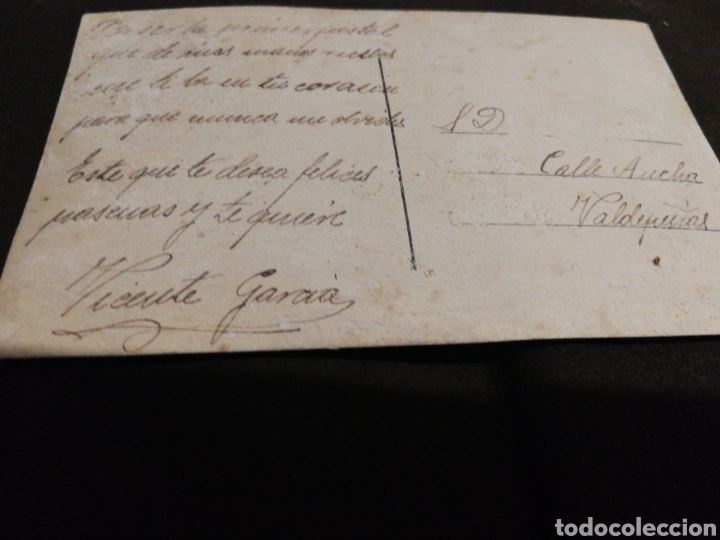 Por ser la primer postal
que de mis manos recibes
en tu corazon
para que nunca me olvides
Este que te desea felices
pascuas y te quiere
Vicente Garcia
S D
Calle Ancha
Valdepeñas
todocoleccion
todocoleccion.net